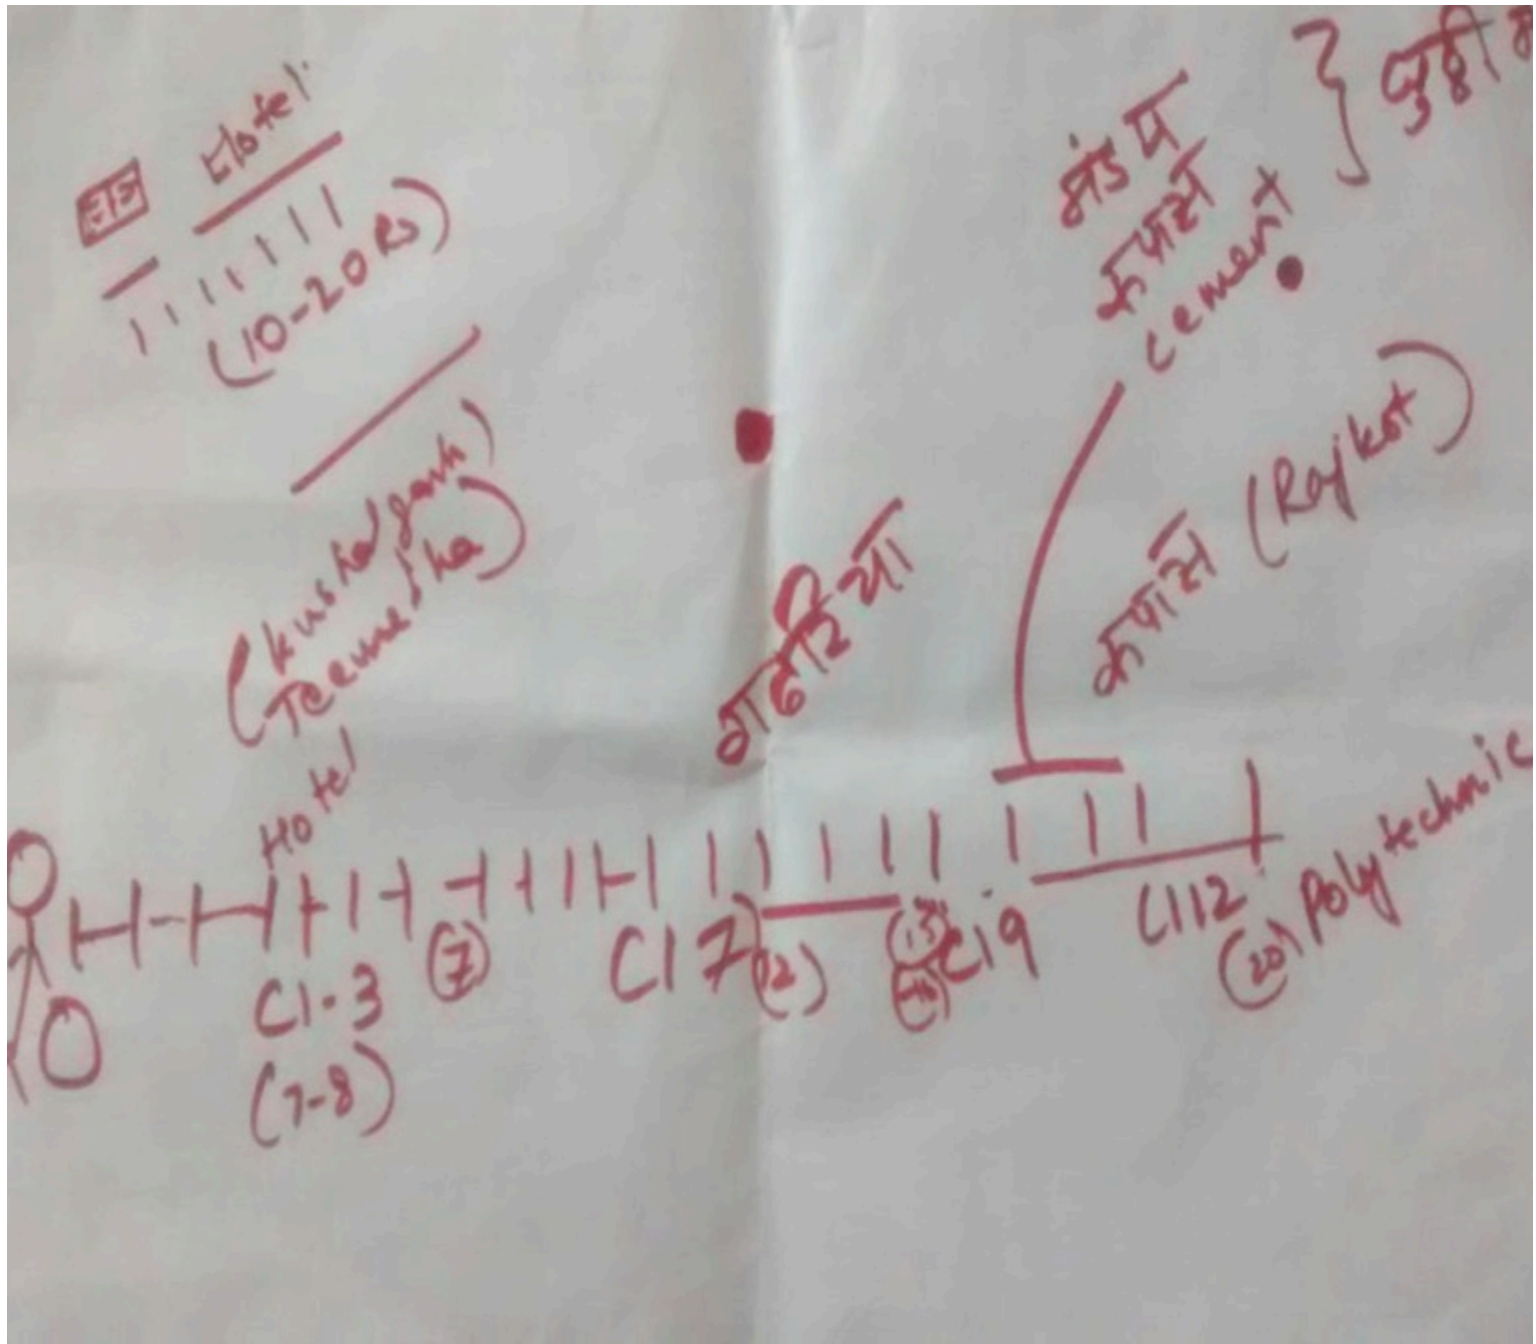 Hotel
(10-20 Rs)
(Kushalgarh)
Hotel
मंडप
कपास
cement
कपास (Rajkot)
Cl-3
(7-8)
(7)
Cl 7
(12)
Cl 9
Cl 12
(20) Polytechnic